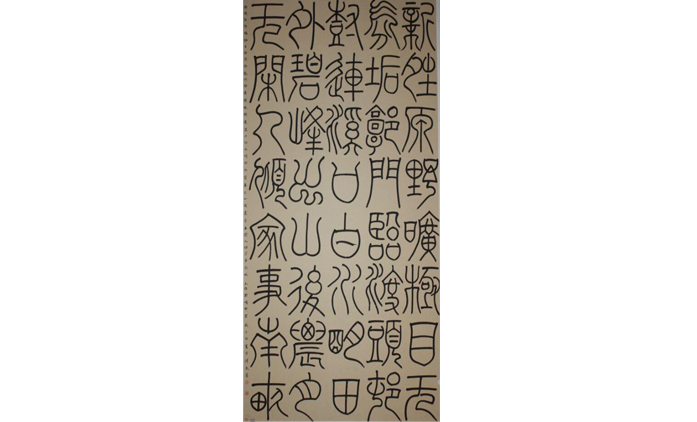 新夝原野曠極目无
氛垢郭門臨渡頭邨
尌連溪口白水明田
外碧峰出山後農月
无閑人傾家事南畝